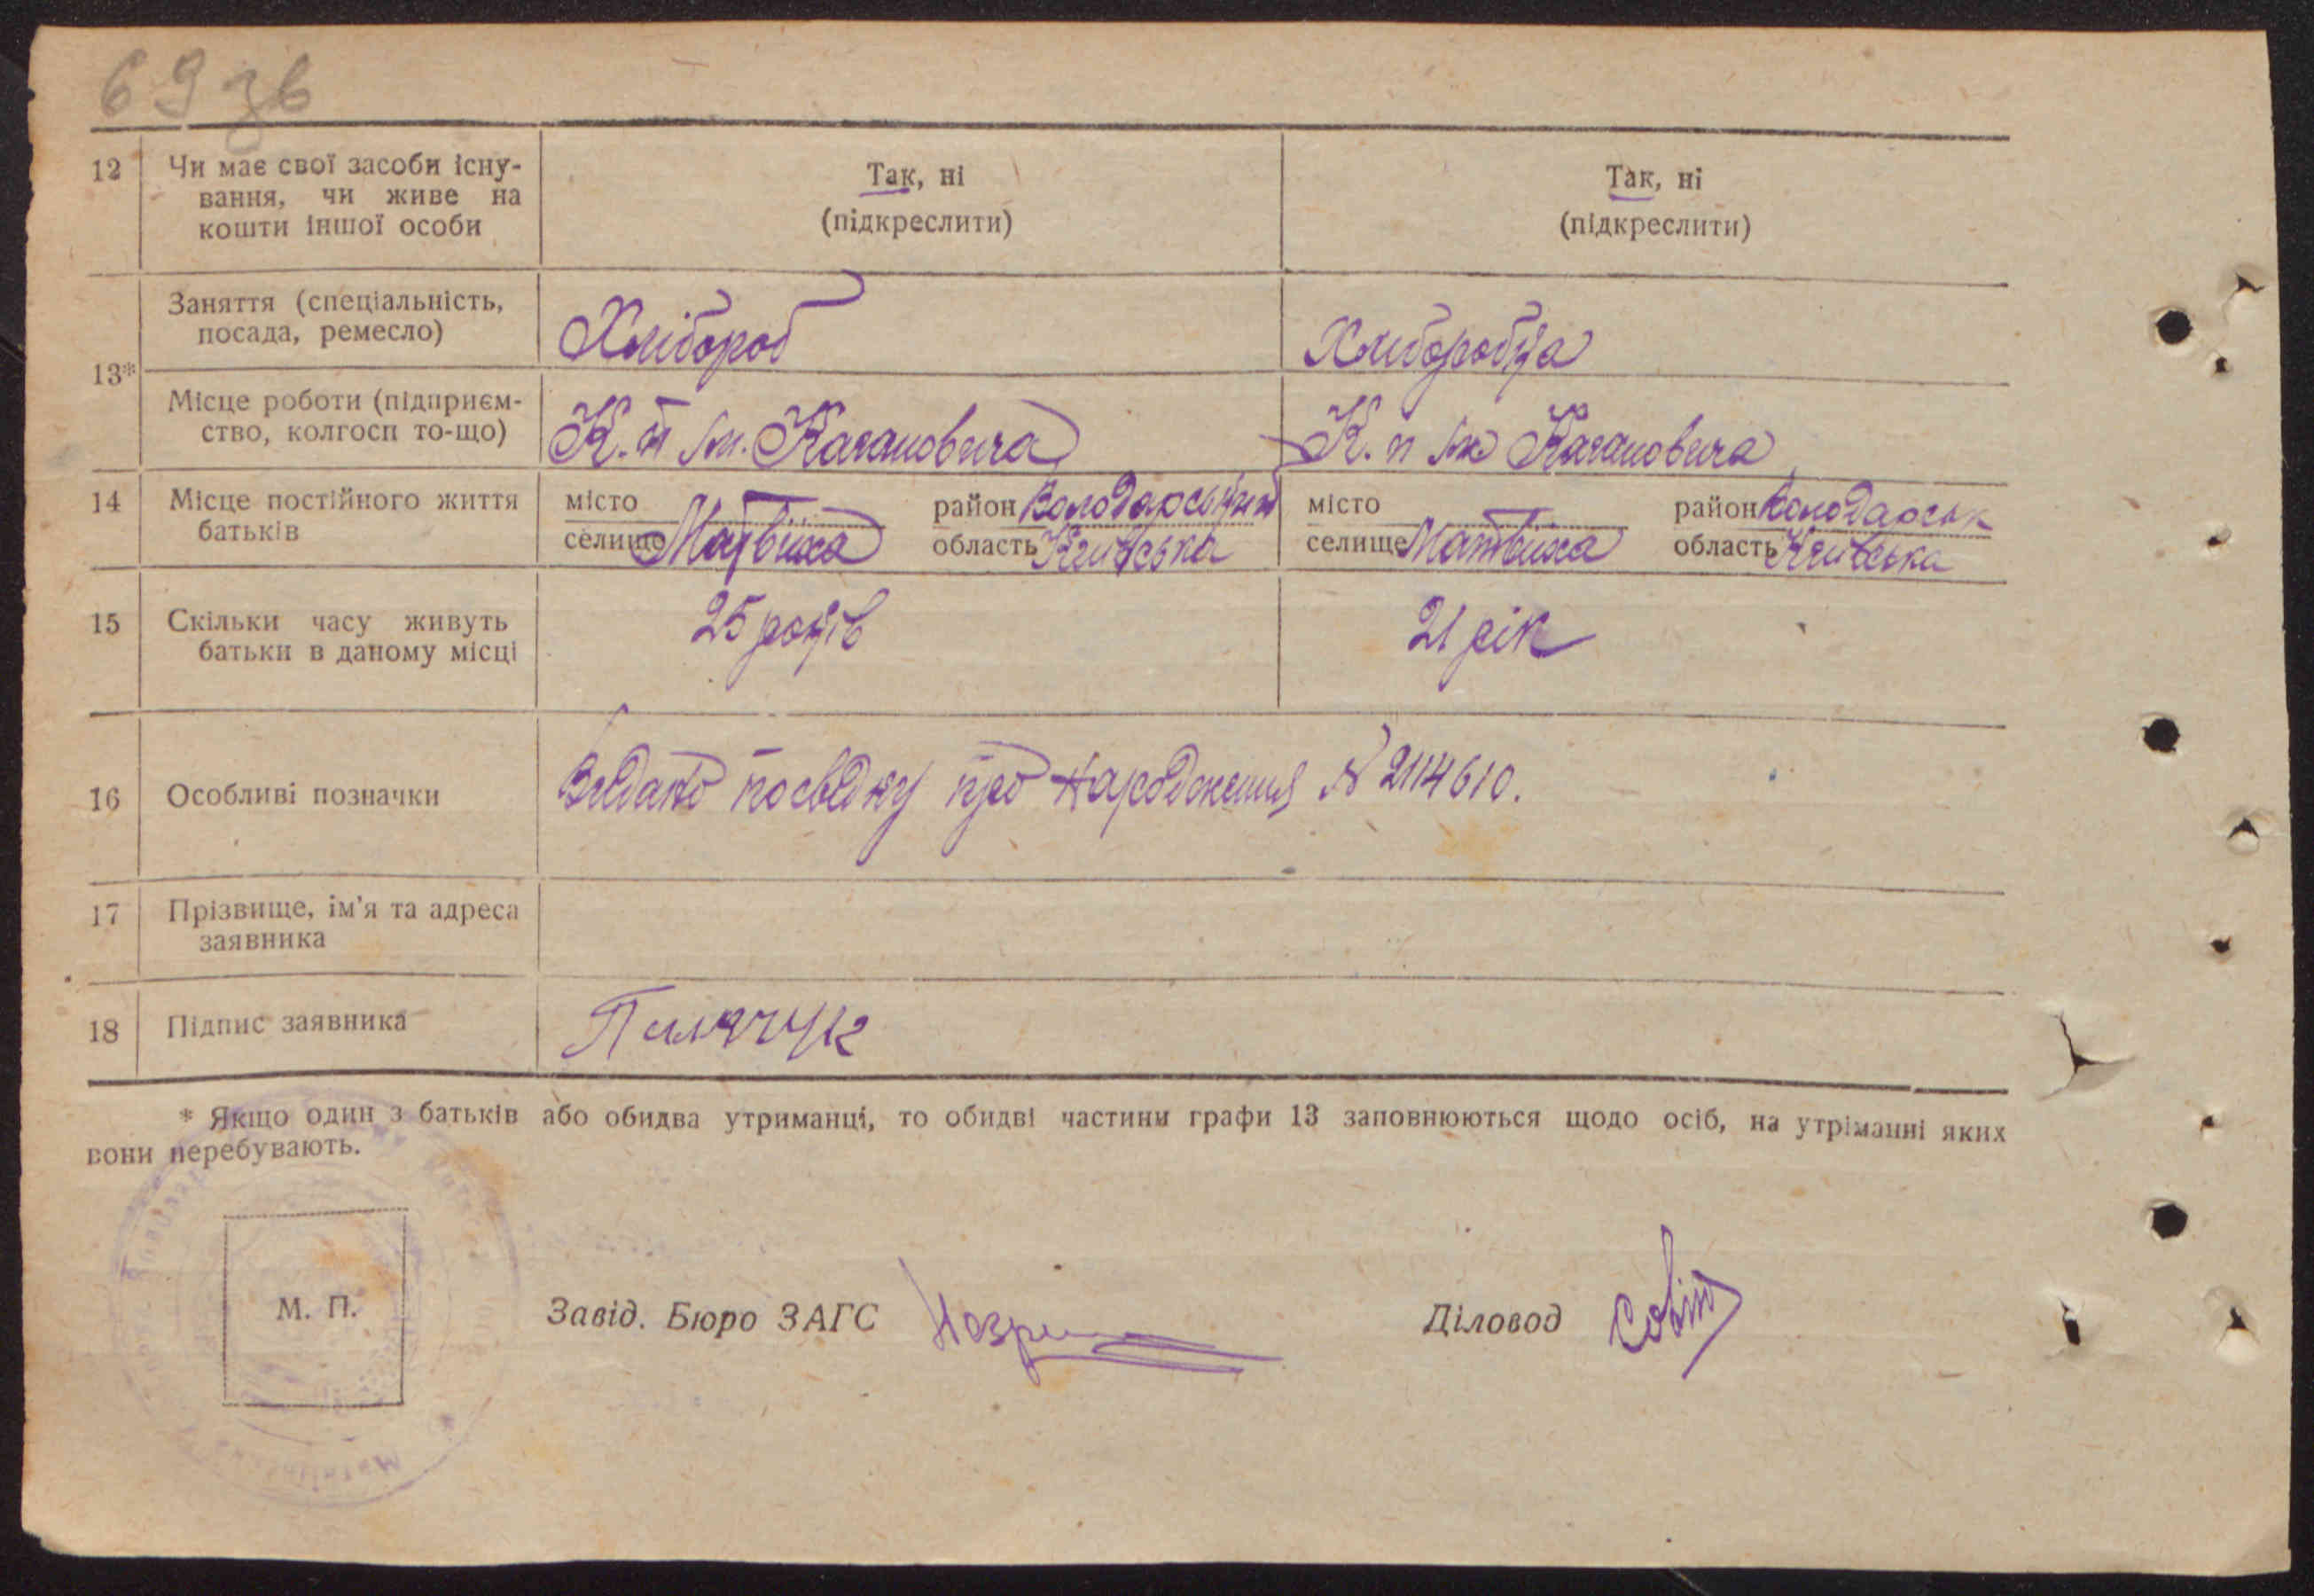 69 зв
12 Чи має свої засоби існу-
вання, чи живе на
кошти іншої особи
Так, ні
(підкреслити)
Так, ні
(підкреслити)
13*
Заняття (спеціальність,
посада, ремесло)
Хлібороб
Хліборобка
Місце роботи (підприєм-
ство, колгосп то-що)
К. п ім. Кагановича
К. п ім Кагановича
14 Місце постійного життя
батьків
місто
селище Матвіиха
район Володарський
область Київська
місто
селище Матвіиха
район Володарськ
область Київська
15 Скільки часу живуть
батьки в даному місці
25 років
21 рік
16 Особливі позначки
Видано посвідку про народження № 2114610.
17 Прізвище, ім'я та адреса
заявника
18 Підпис заявника
* Якщо один з батьків або обидва утриманці, то обидві частини графи 13 заповнюються щодо осіб, на утріманні яких
вони перебувають.
М. П.
Завід. Бюро ЗАГС
Діловод